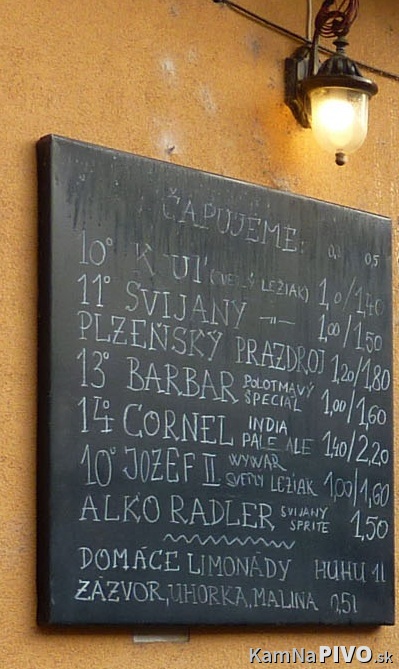 ČAPUJEME: 0,3 0,5
10° K UĽ (SVETLÝ LEŽIAK) 1,0/1,40
11° SVIJANY —"— 1,00/1,50
PLZEŇSKÝ PRAZDROJ 1,20/1,80
13° BARBAR POLOTMAVÝ ŠPECIAL 1,00/1,60
14 CORNEL INDIA PALE ALE 1,40/2,20
10° JOZEF II WYWAR SVETLÝ LEŽIAK 1,00/1,60
ALKO RADLER SVIJANY SPRITE 1,50
DOMÁCE LIMONÁDY HUHU 1l
ZÁZVOR, UHORKA, MALINA 0,5l
KamNaPIVO.sk